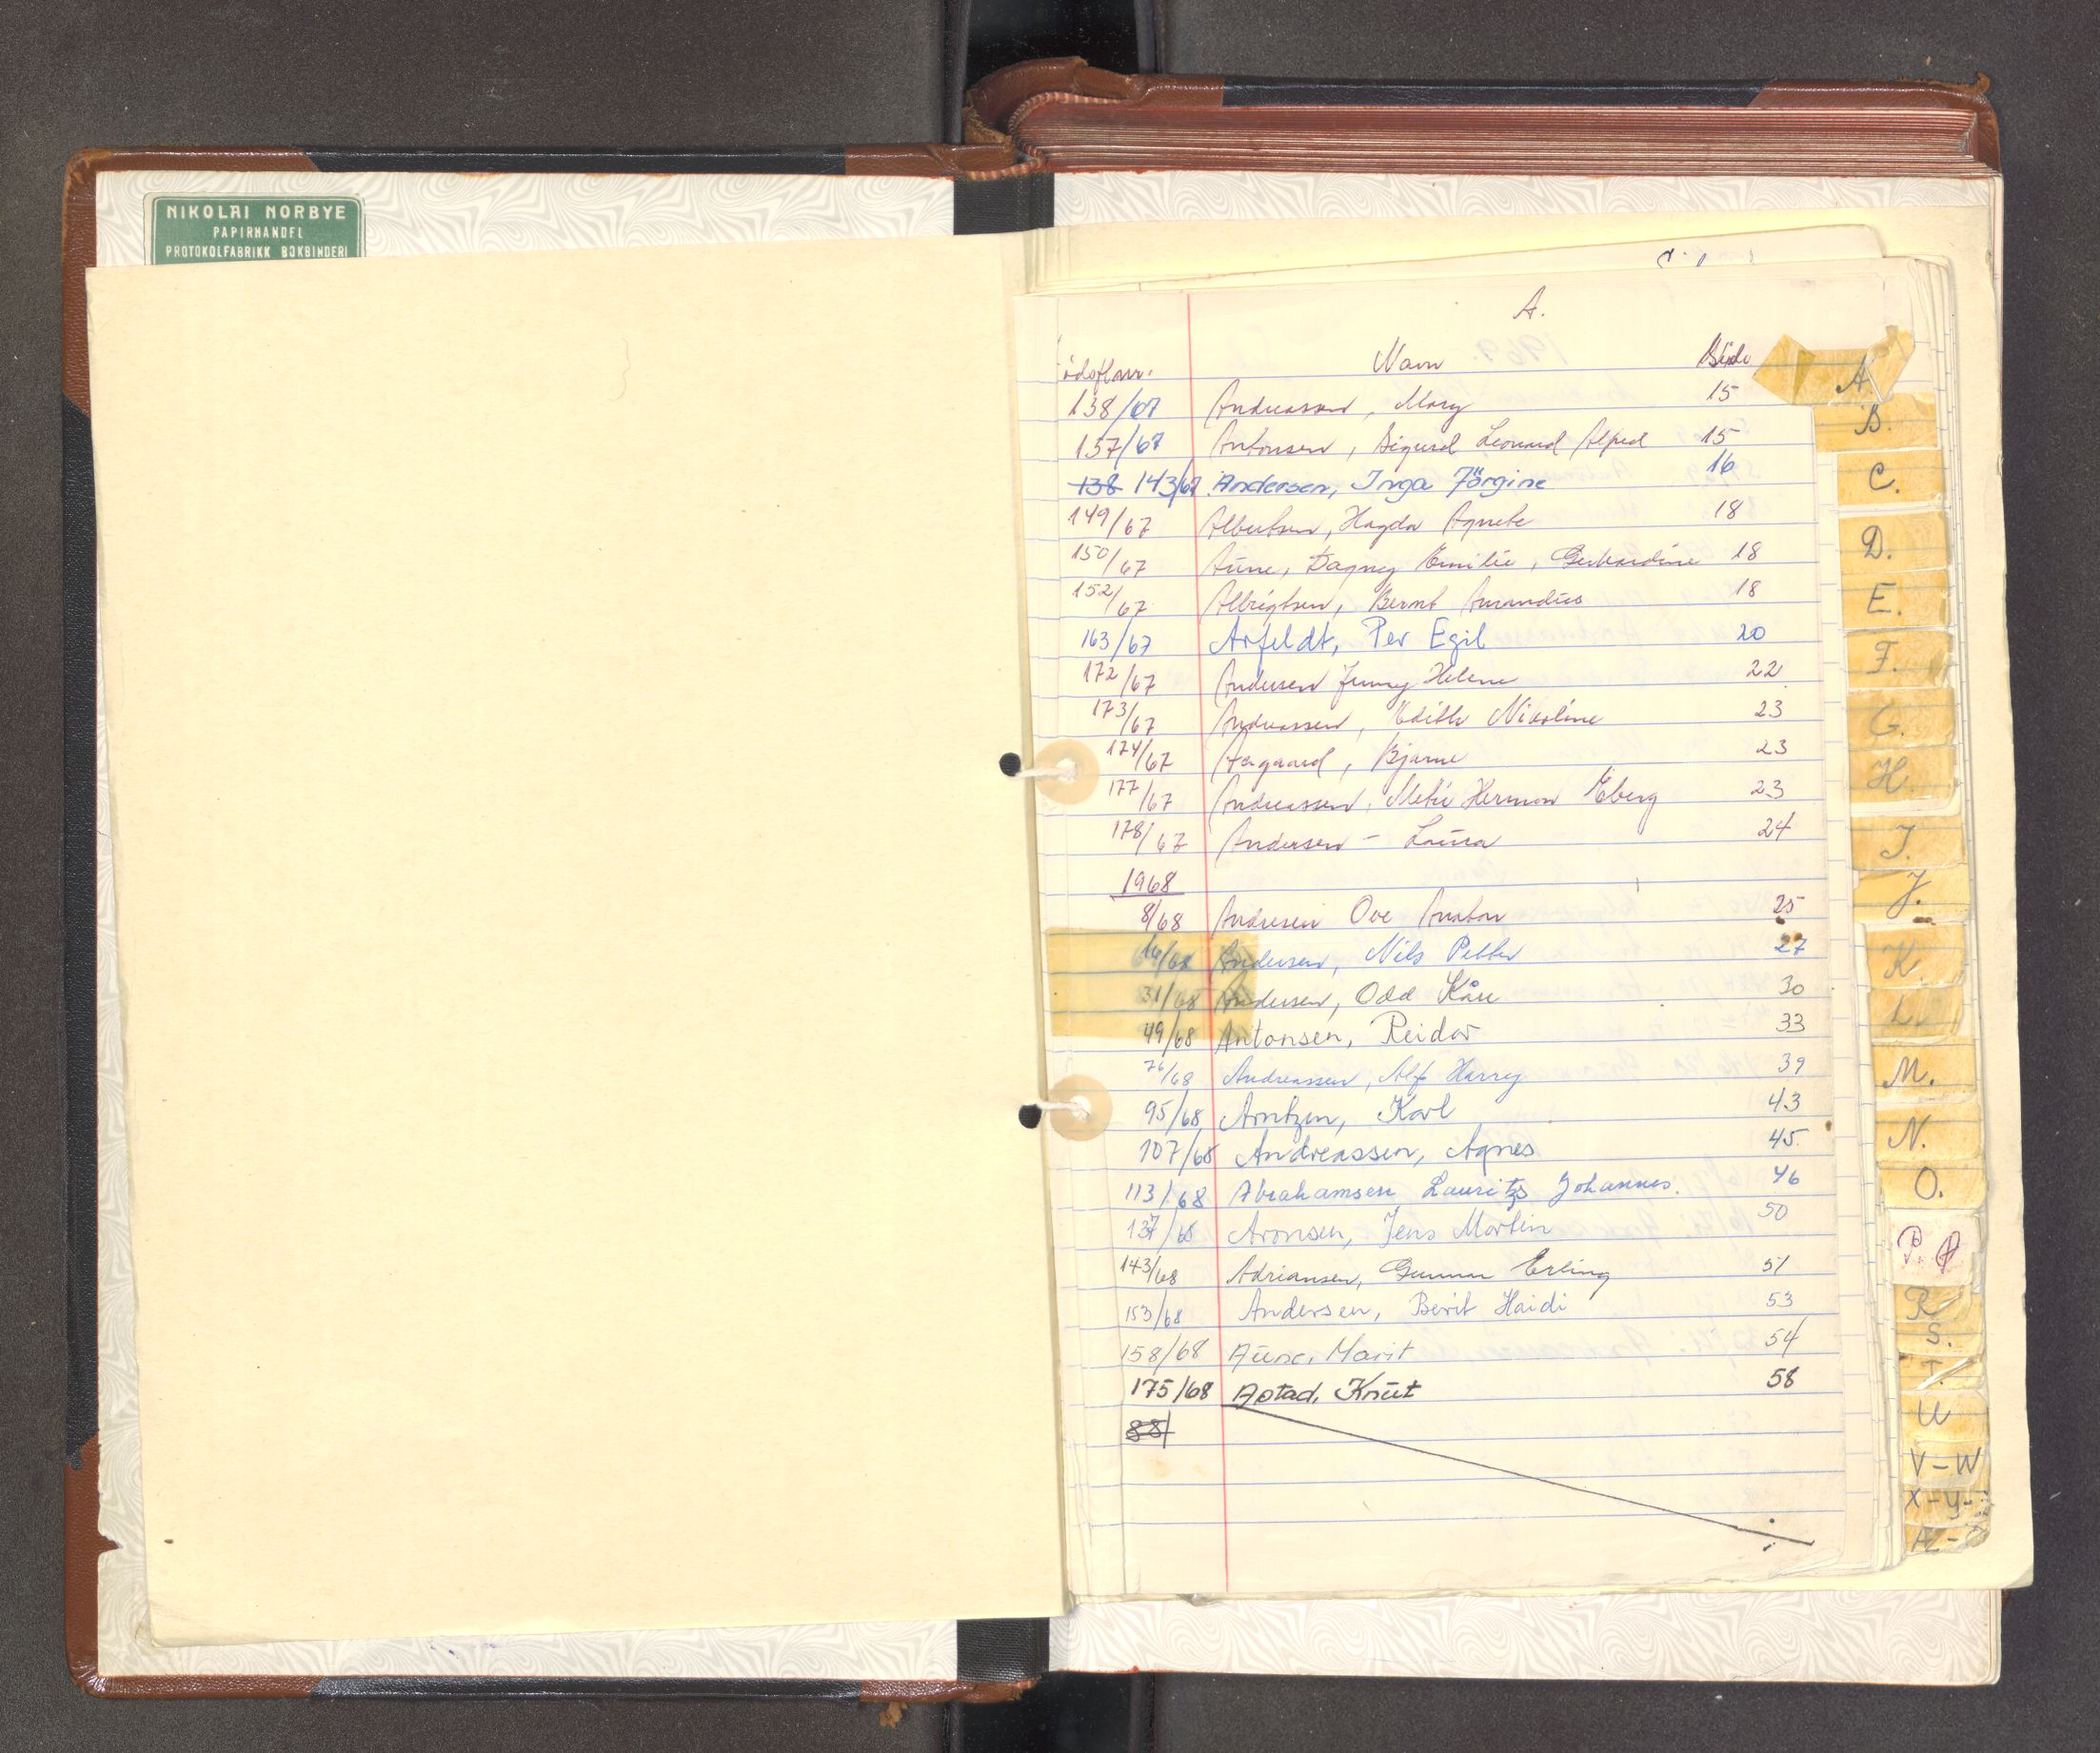 NIKOLAI NORBYE
PAPIRHANDEL
PROTOKOLFABRIKK BOKBINDERI
A.
ödsflnr. Navn Side
138/67 Andreassen, Mary 15
137/67 Antonsen, Sigurd Leonard Alfred 15
138 143/67 Andersen, Inga Jörgine 16
149/67 Albertsen, Magda Agnete 18
150/67 Aune, Dagny Emilie, Gerhardine 18
152/67 Albrigtsen, Bernt Amandus 18
163/67 Arfeldt, Per Egil 20
172/67 Andersen Jenny Helene 22
173/67 Andreassen, Edith Nikoline 23
174/67 Aagaard, Bjarne 23
177/67 Andreassen, Herman Eberg 23
178/67 Andersen - Laura 24
1968
8/68 Andresen Ove Anton 25
16/68 Andersen, Nils Petter 27
31/68 Andersen, Odd Kåre 30
49/68 Antonsen, Reidar 33
76/68 Andreassen, Alf Harry 39
95/68 Arntzen, Karl 43
107/68 Andreassen, Agnes 45
113/68 Abrahamsen Lauritz Johannes. 46
137/68 Aronsen, Jens Martin 50
143/68 Adriansen, Gunnar Erling 51
153/68 Andersen, Berit Haidi 53
158/68 Aune, Marit 54
175/68 Aptad, Knut 58
88/
A
B.
C.
D.
E.
F.
G.
H.
I.
J.
K.
L.
M.
N.
O.
P.
R
S.
T.
U
V-W
X-Y-
Æ-